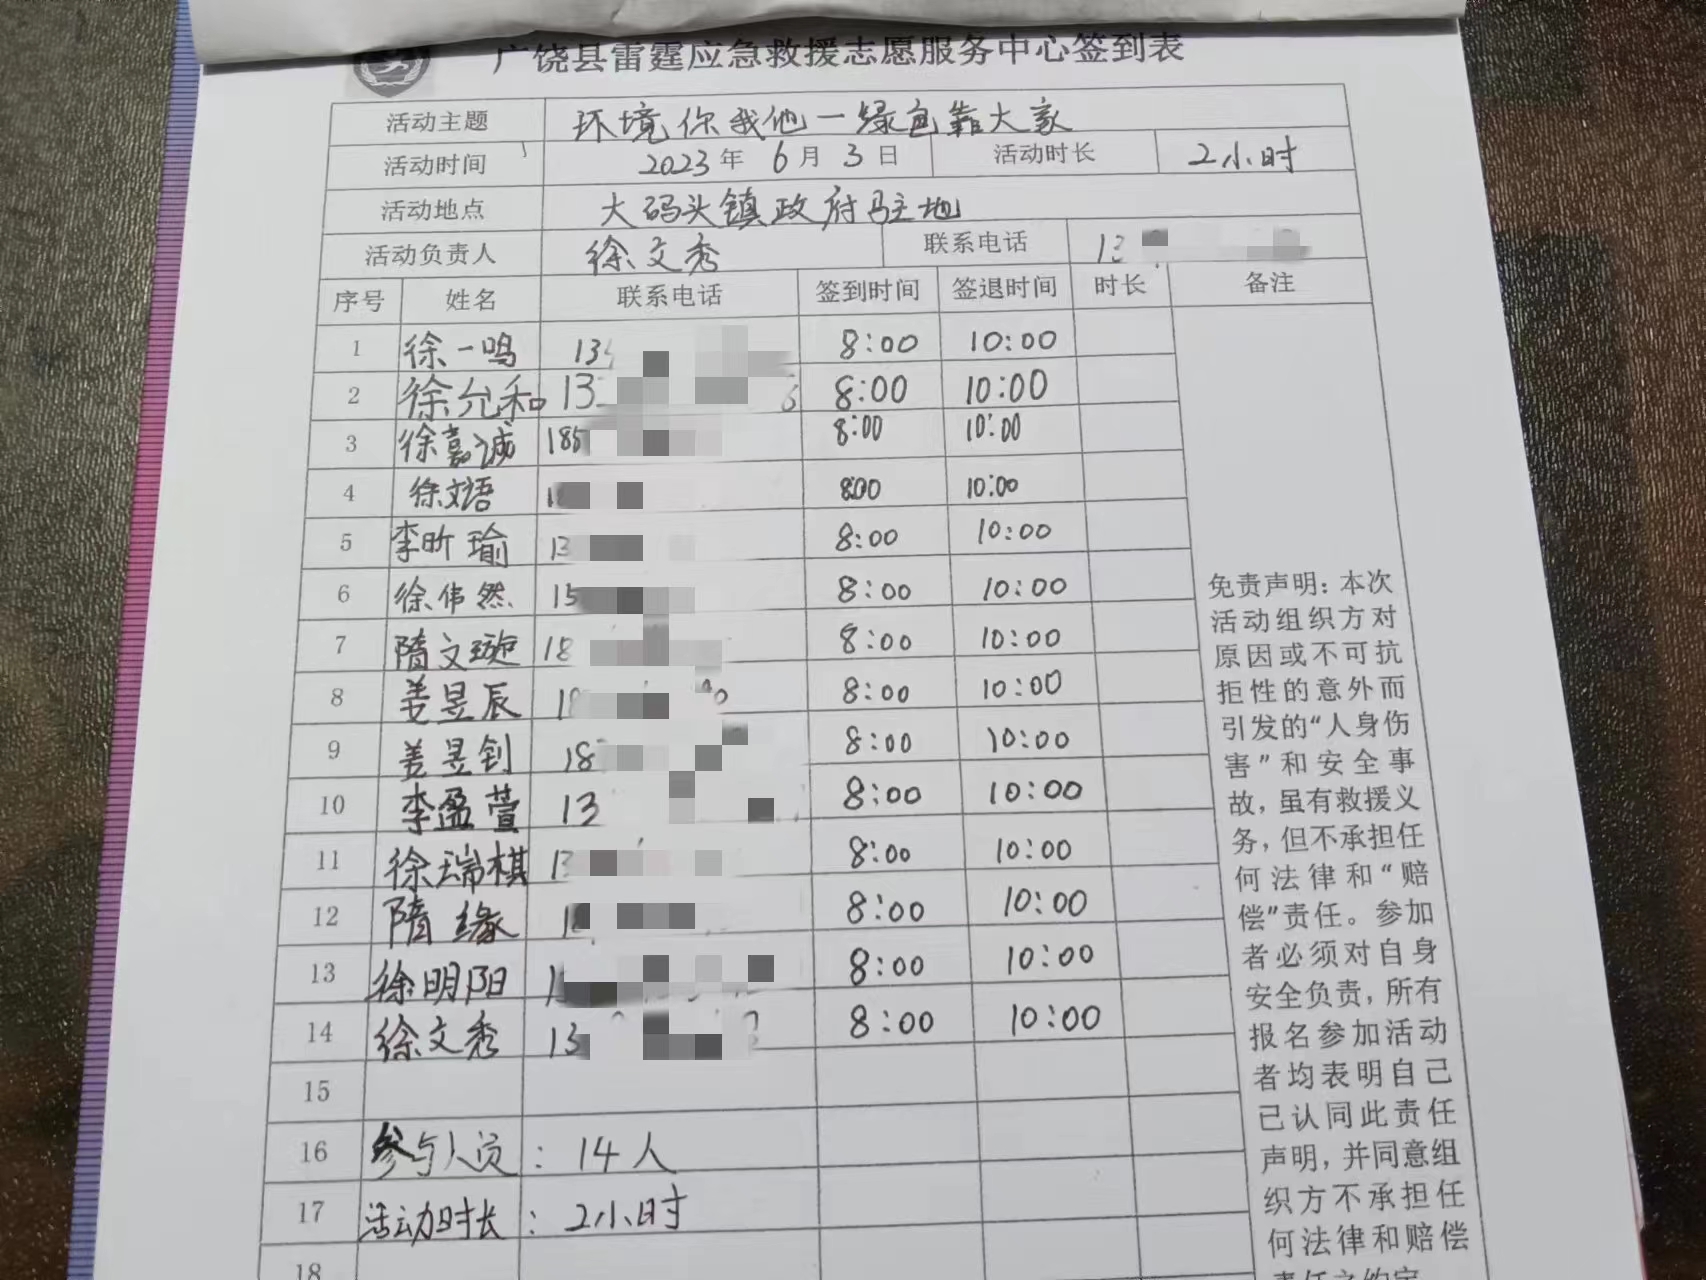 广饶县雷霆应急救援志愿服务中心签到表
活动主题 环境你我他一绿色靠大家
活动时间 2023年 6月 3日 活动时长 2小时
活动地点 大码头镇政府驻地
活动负责人 徐文秀 联系电话 13
序号 姓名 联系电话 签到时间 签退时间 时长 备注
1 徐一鸣 13 8:00 10:00
2 徐允和 13 8:00 10:00
3 徐嘉诚 185 8:00 10:00
4 徐文语 1 8:00 10:00
5 李昕瑜 13 8:00 10:00
6 徐伟然 15 8:00 10:00
7 隋文璇 18 8:00 10:00
8 姜昱辰 18 8:00 10:00
9 姜昱钊 18 8:00 10:00
10 李盈萱 13 8:00 10:00
11 徐瑞棋 13 8:00 10:00
12 隋缘 1 8:00 10:00
13 徐明阳 1 8:00 10:00
14 徐文秀 13 8:00 10:00
15
16 参与人员: 14人
17 活动时长: 2小时
18
免责声明:本次
活动组织方对
原因或不可抗
拒性的意外而
引发的“人身伤
害”和安全事
故,虽有救援义
务,但不承担任
何法律和“赔
偿”责任。参加
者必须对自身
安全负责,所有
报名参加活动
者均表明自己
已认同此责任
声明,并同意组
织方不承担任
何法律和赔偿
责任之约定